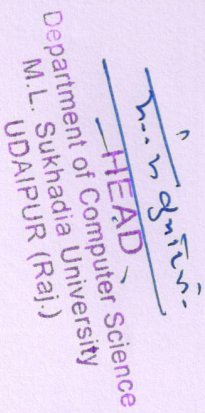 HEAD
Department of Computer Science
M.L. Sukhadia University
UDAIPUR (Raj.)